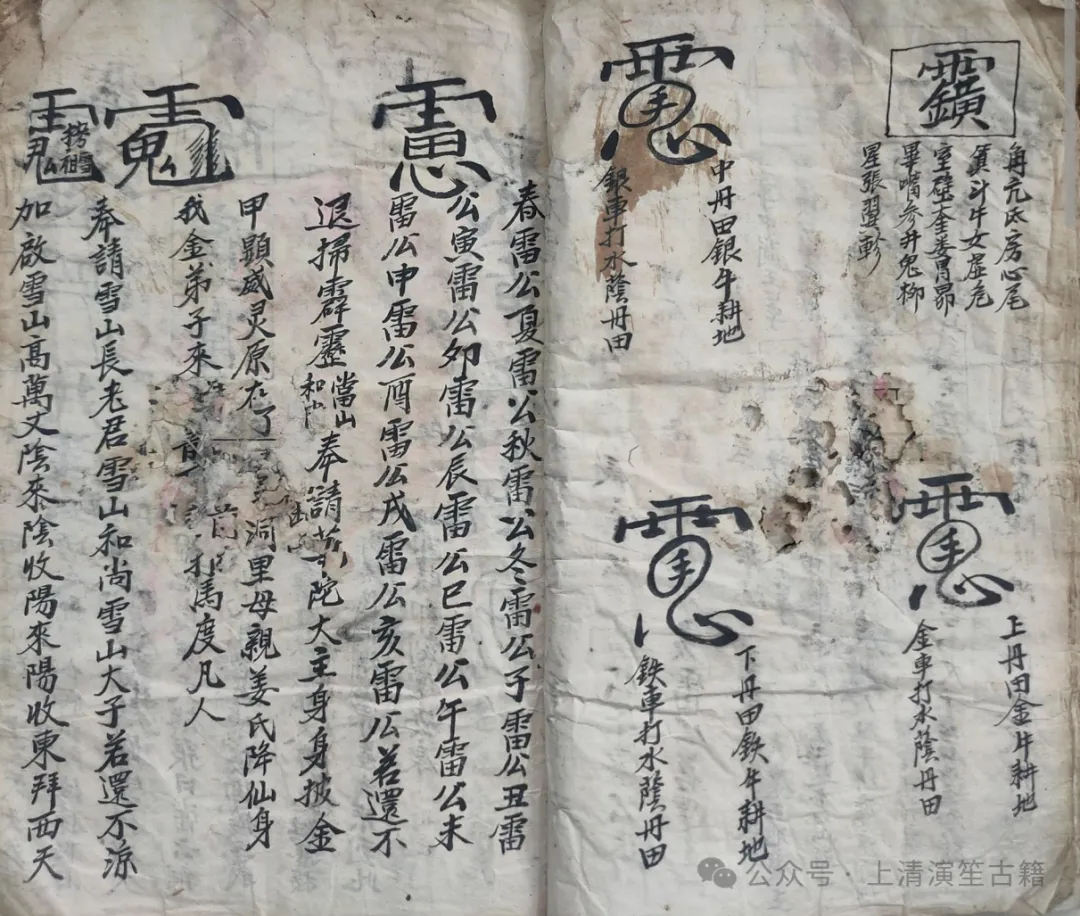 角亢氐房心尾
箕斗牛女虛危
室壁奎婁胃昴
畢嘴參井鬼柳
星張翌軫
上丹田金牛耕地
金車打水蔭丹田
中丹田銀牛耕地
銀車打水蔭丹田
下丹田鉄牛耕地
鉄車打水蔭丹田
春雷公夏雷公秋雷公冬雷公子雷公丑雷
公寅雷公卯雷公辰雷公巳雷公午雷公未
雷公申雷公酉雷公戌雷公亥雷公若還不
退掃霹靂當山和尚奉請大主身身披金
甲顕威灵原在洞里母親姜氏降仙身
我金弟子來馬度凡人
奉請雪山長老君雪山和尚雪山大子若還不涼
加啟雪山高萬丈陰來陰收陽來陽收東拜西天
公众号·上清演笙古籍